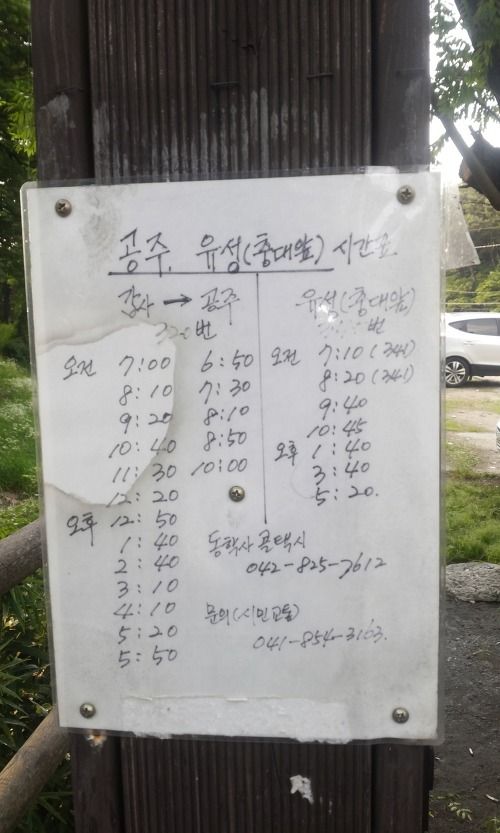 공주, 유성(충대앞) 시간표
갑사 → 공주
320번
오전 7:00 6:50
8:10 7:30
9:20 8:10
10:40 8:50
11:30 10:00
12:20
오후 12:50
1:40
2:40
3:10
4:10
5:20
5:50
유성(충대앞)
번
오전 7:10 (341)
8:20 (341)
9:40
10:45
오후 1:40
3:40
5:20.
동학사 콜택시
042-825-7612
문의(시민교통)
041-854-3163.